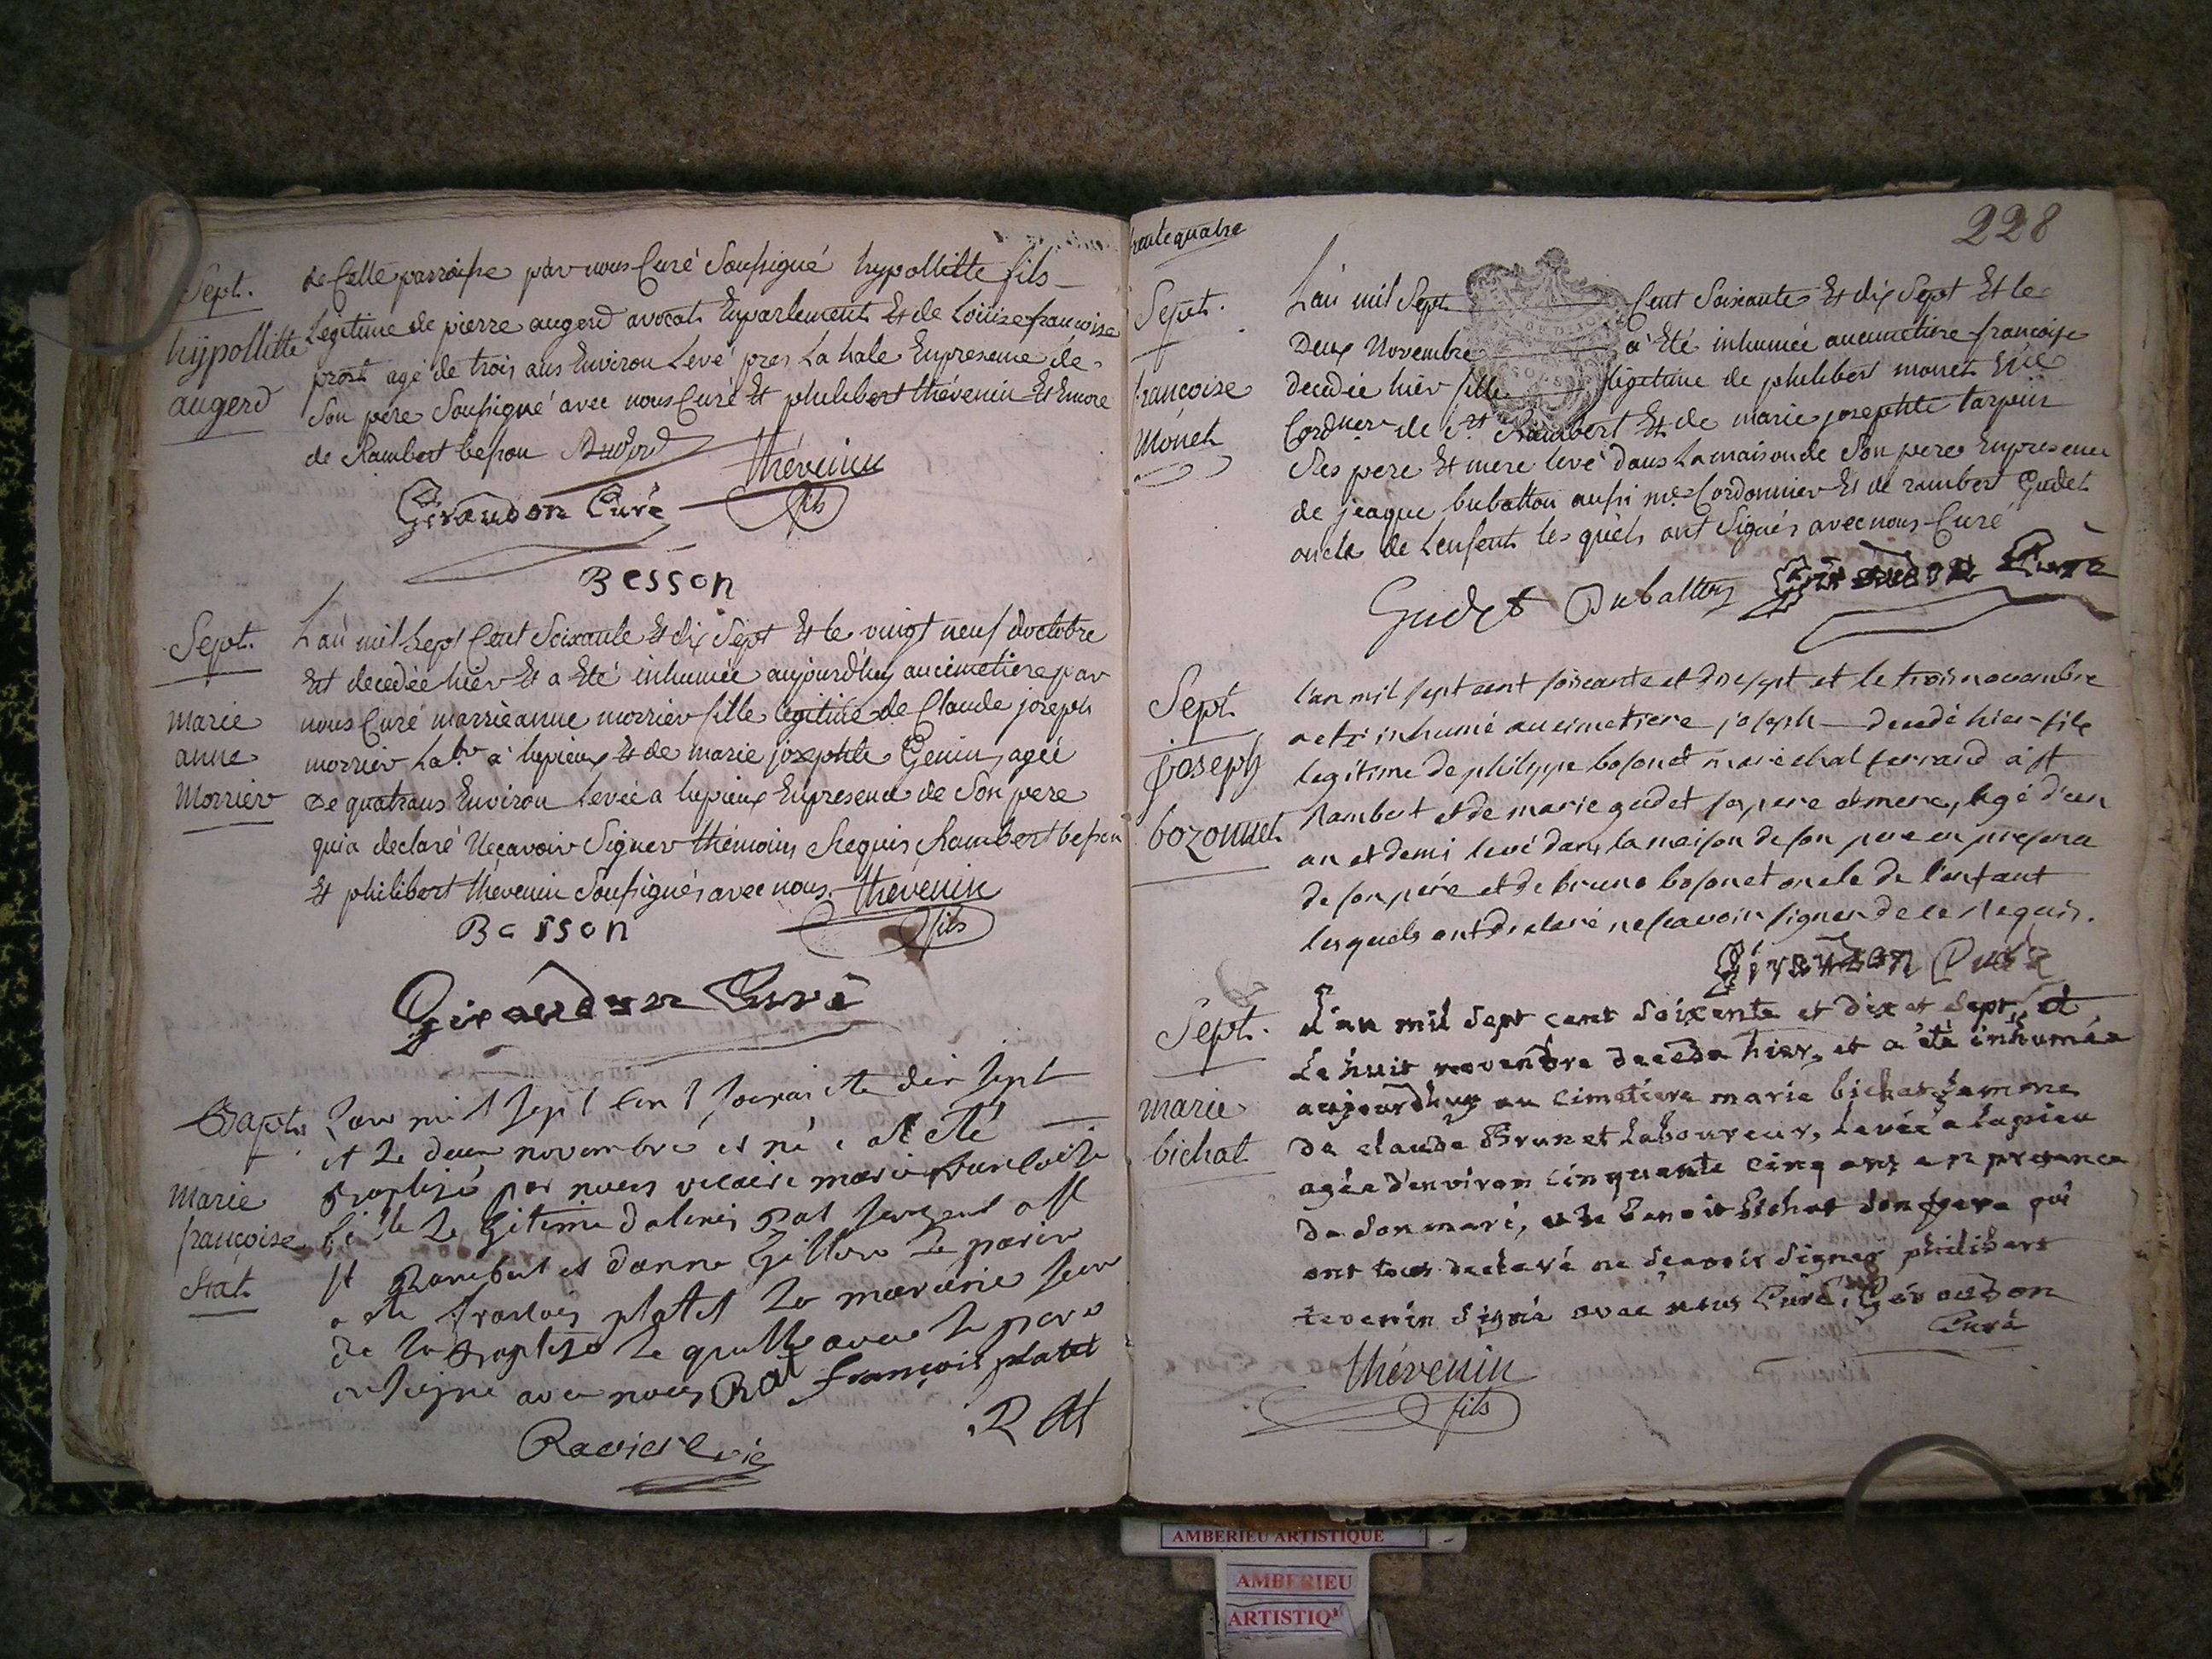 Sept.
hÿpollitte
augerd
de Cette parroisse par nous Curé Soussigné hypollitte fils
Legitime de pierre augerd avocat Enparlement Et de Loüise francoise
prost agé de trois ans Environ Levé pres La hale Enpresence de
Son pere Soussigné avec nous Curé Et philibert thévenin Et Encore
de Rambert besson
thévenin
fils
Giraudon Curé
Besson
Sept.
marie
anne
Morrier
L'an mil Sept Cent Soixante Et dix Sept Et le vingt neuf doctobre
Est decedée hier Et a Eté inhumée aujourd'huy au cimetiere par
nous Curé marrieanne morrier fille legitime de Claude joseph
morrier Labr a lupieux Et de marie josephte Genin, agée
De quatrans Environ levée a lupieux Enpresence de Son pere
qui a declaré Neçavoir Signer thémoins Requis Rambert besson
Et philibert thevenin Soussignés avec nous. thévenin
fils
Besson
Giraudon Curé
Bapt.
Marie
françoise
Stat.
Lan mil sept cent soixante dix sept
et le deux novembre est né et a été
Baptisé par nous vicaire marie francoise
fille Legitime Rat sergent
st Rambert et danne Le parin
a été francois platet La marenne
de la Baptisé Le quelle avec Le pere
ont signé avec nous Rat françois platet
Rat
Ravier vic
trentequatre
228
Sept.
francoise
Monet
L'an mil Sept Cent Soixante Et dix Sept Et le
Deux Novembre a Eté inhumée aucimetiere francoise
decedée hier fille légitime de philibert monet
Cordner de St Rambert Et de marie josephte tarpin
Ses pere Et mere levé dans La maison de Son pere Enpresence
de jeaque bubatton aussi me Cordonnier Et de rambert Gudet
oncle de Lenfent les quels ont Signés avec nous Curé
Gudet Dubatton Giraudon Curé
Sept.
joseph
bozonnet
l'an mil sept cent soixante et dix sept et le trois novembre
a eté inhumé au cimetiere joseph decedé hier fils
legitime de philippe bosonet marechal ferrand à st
Rambert et de marie gudet ses pere et mere, agé d'un
an et demi levé dans la maison de son pere en presence
de son pére et de bruno bosonet oncle de l'enfant
lesquels ont declaré ne scavoir signer de ce requis.
Giraudon Curé
Sept.
marie
bichat
L'an mil Sept cent Soixente et dix et Sept, et
Le huit novenbre decede hier, et a été inhumée
aujourdhuy au cimetiere marie bichat femme
de claude Brunet Laboureur, Levée a Lupieu
agée d'environ cinquante cinq ans en presance
de Son mari, et de benoit bichat Son frere qui
ont tous declaré ne Sçavoir Signer philibert
tevenin Signé avec nous Curé, Giraudon
Curé
thévenin
fils
AMBERIEU ARTISTIQUE
AMBERIEU
ARTISTIQ